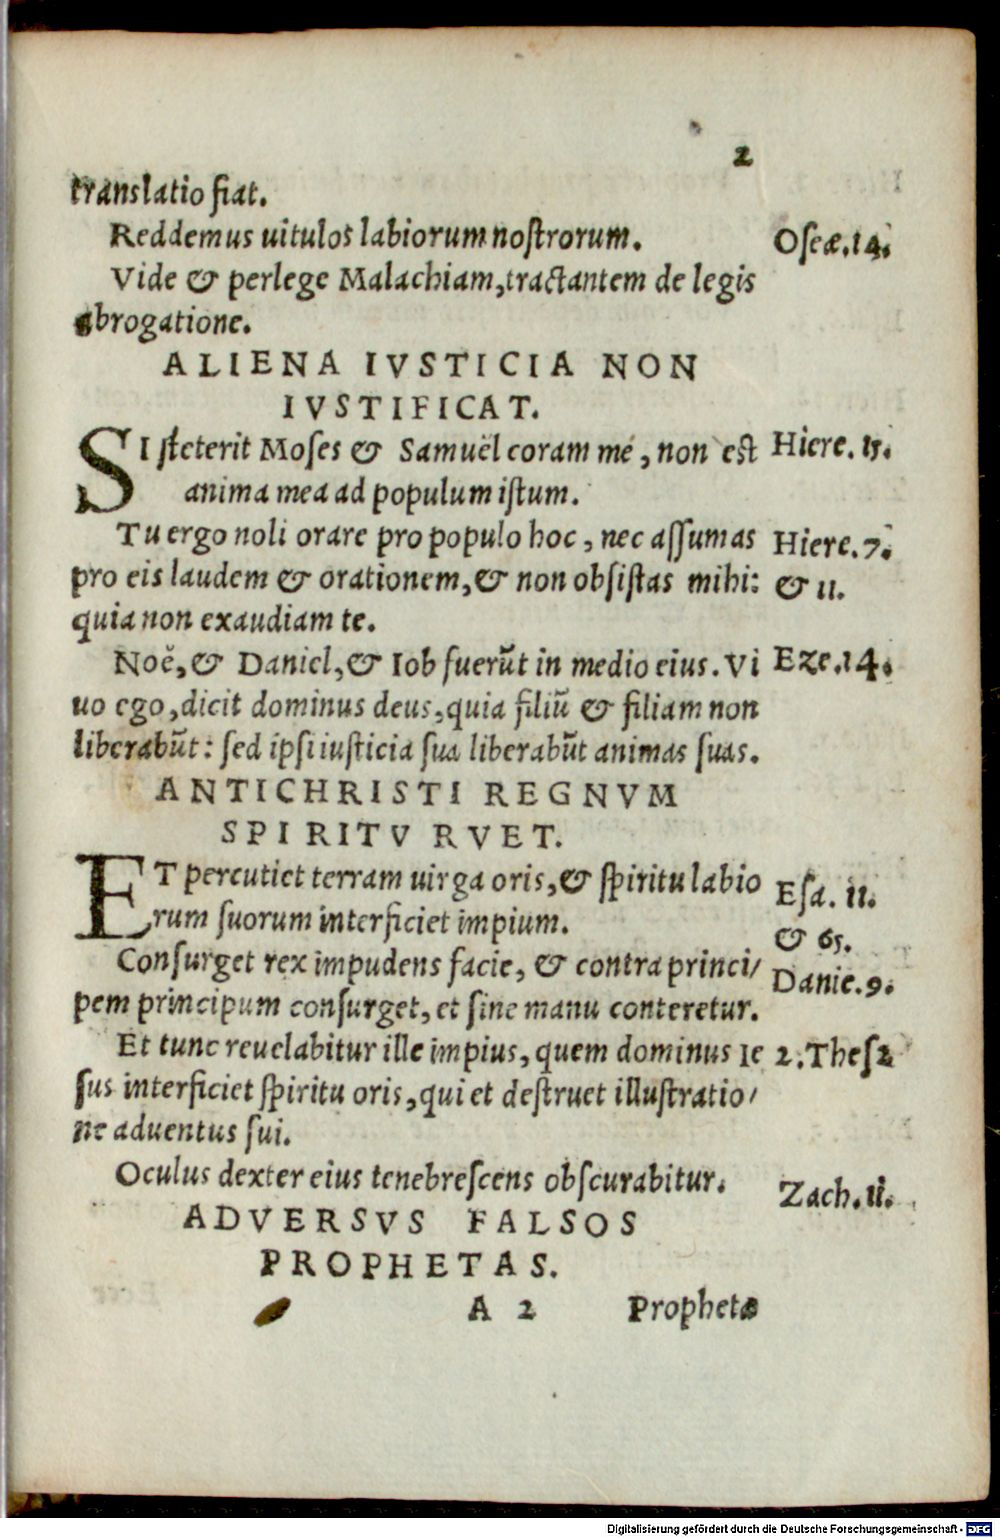 2
translatio fiat.
Reddemus uitulos labiorum nostrorum. Oseæ.14.
Vide & perlege Malachiam, tractantem de legis
abrogatione.
ALIENA IVSTICIA NON
IVSTIFICAT.
SI steterit Moses & Samuël coram me, non est Hiere. 15.
anima mea ad populum istum.
Tu ergo noli orare pro populo hoc, nec assumas Hiere. 7.
pro eis laudem & orationem, & non obsistas mihi: & 11.
quia non exaudiam te.
Noë, & Daniel, & Iob fuerūt in medio eius. Vi Eze.14.
uo ego, dicit dominus deus, quia filiū & filiam non
liberabūt: sed ipsi iusticia sua liberabūt animas suas.
ANTICHRISTI REGNVM
SPIRITV RVET.
ET percutiet terram uirga oris, & spiritu labio Esa. 11.
rum suorum interficiet impium. & 65.
Consurget rex impudens facie, & contra princi/ Danie.9.
pem principum consurget, et sine manu conteretur.
Et tunc reuelabitur ille impius, quem dominus Ie 2.Thes2
sus interficiet spiritu oris, qui et destruet illustratio/
ne aduentus sui.
Oculus dexter eius tenebrescens obscurabitur. Zach.11.
ADVERSVS FALSOS
PROPHETAS.
A 2 Prophetæ
Digitalisierung gefördert durch die Deutsche Forschungsgemeinschaft - DFG